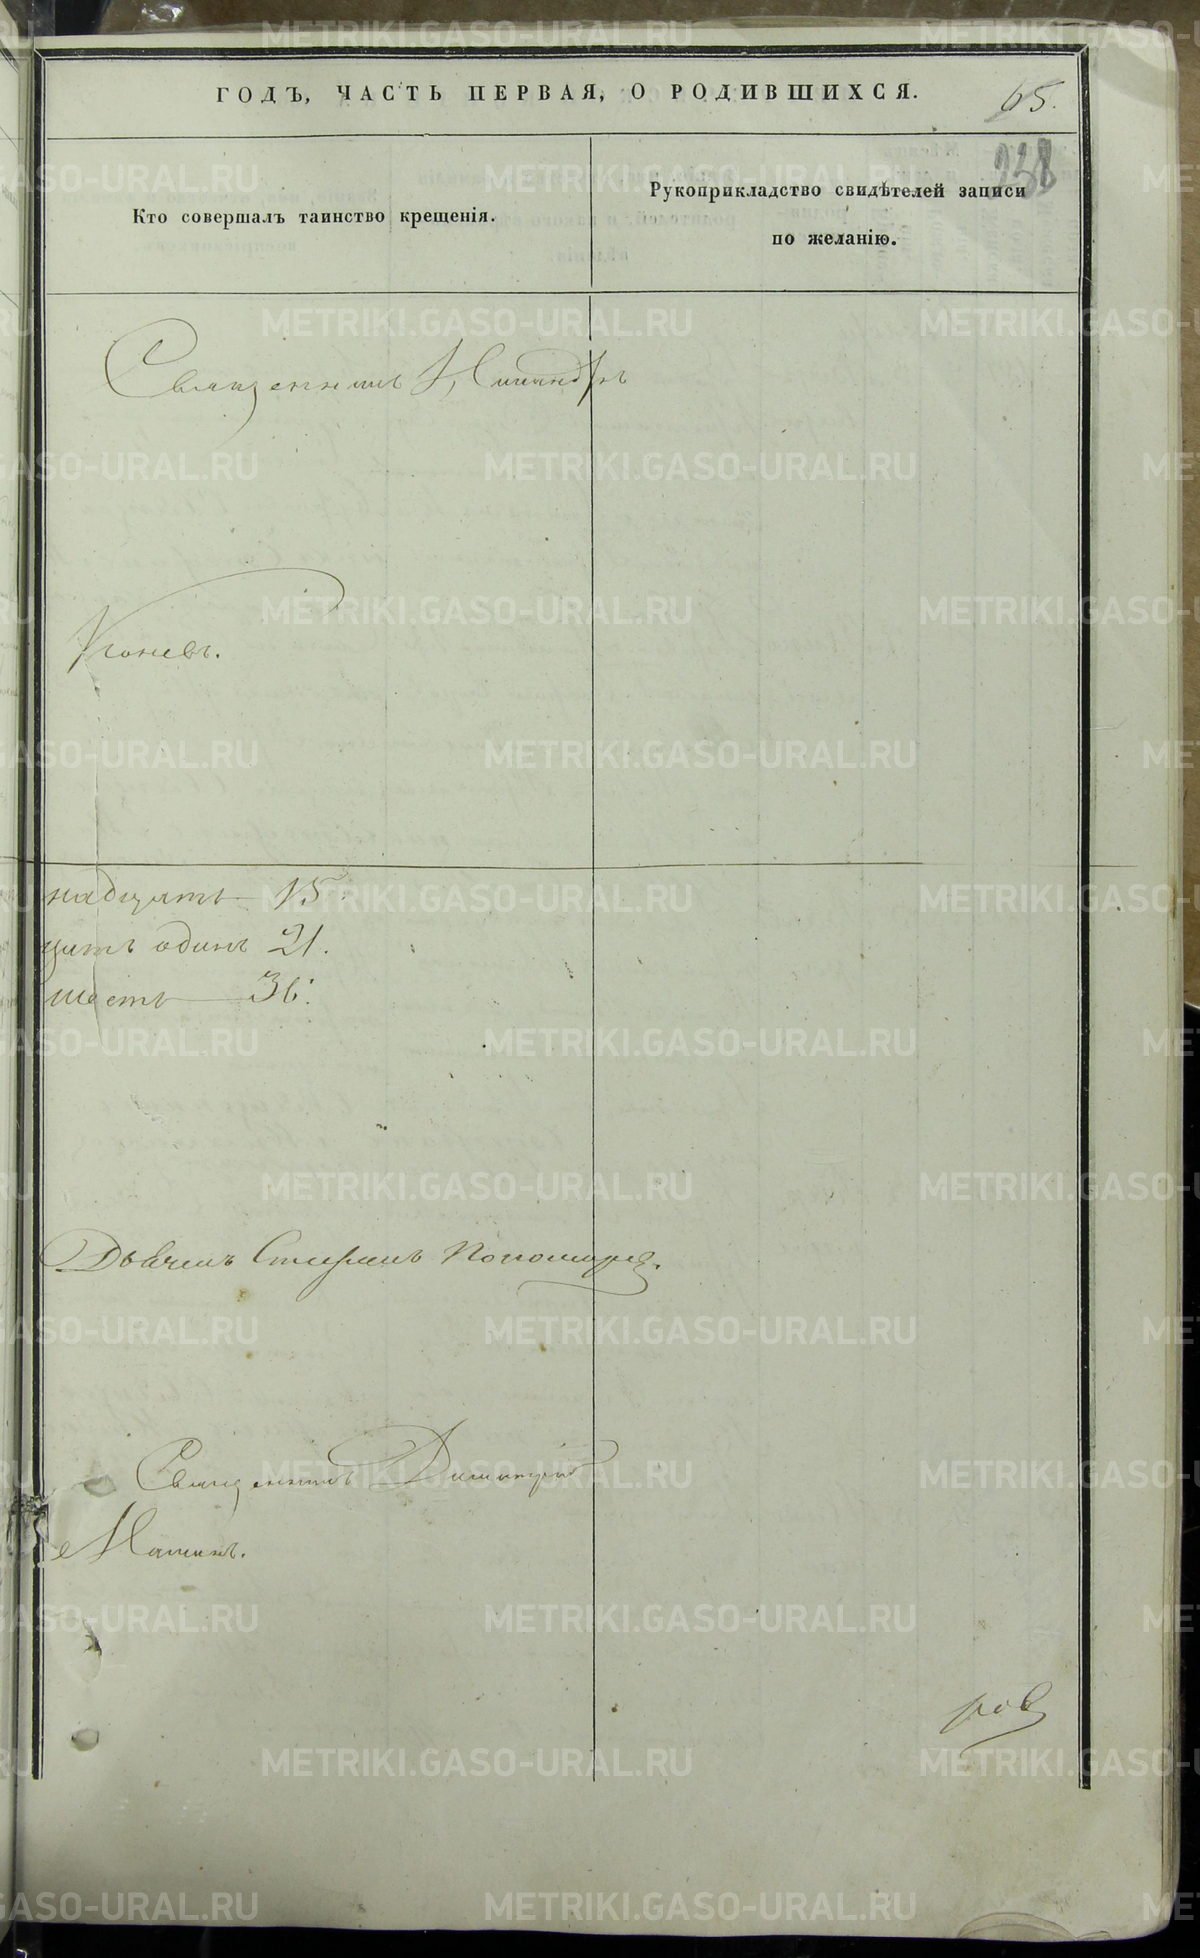 ГОДЪ, ЧАСТЬ ПЕРВАЯ, О РОДИВШИХСЯ.
65.
238
Кто совершалъ таинство крещенія.
Рукоприкладство свидѣтелей записи
по желанію.
Священникъ Никандръ
Коневъ.
надцать 15.
цать одинъ 21.
шесть 36.
Дьячекъ Стефанъ Пономарев.
Священникъ Димитрій
Мамин.
ров
METRIKI.GASO-URAL.RU